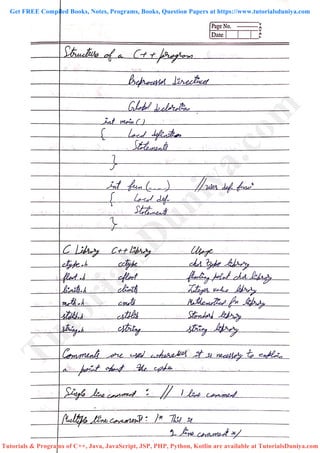 Get FREE Compiled Books, Notes, Programs, Books, Question Papers at https://www.tutorialsduniya.com
Page No.
Date
Structure of a C++ program
Preprocessor Directives
Global Declaration
int main ( )
{ Local definition
Statements
}
int fun (---) //user def. func
{ Local def.
Statement
}
C Library C++ Library Usage
ctype.h cctype char type library
float.h cfloat floating point library
limits.h climits Integer value library
math.h cmath Mathematical fn library
stdlib.h cstdlib Standard library
string.h cstring string library
Comments are used wherever it is necessary to explain
a point about the code
Single line comment : // 1 line comment
Multiple line comment : /* This is
2 line comment */
Tutorials Duniya.com
Tutorials & Programs of C++, Java, JavaScript, JSP, PHP, Python, Kotlin are available at TutorialsDuniya.com